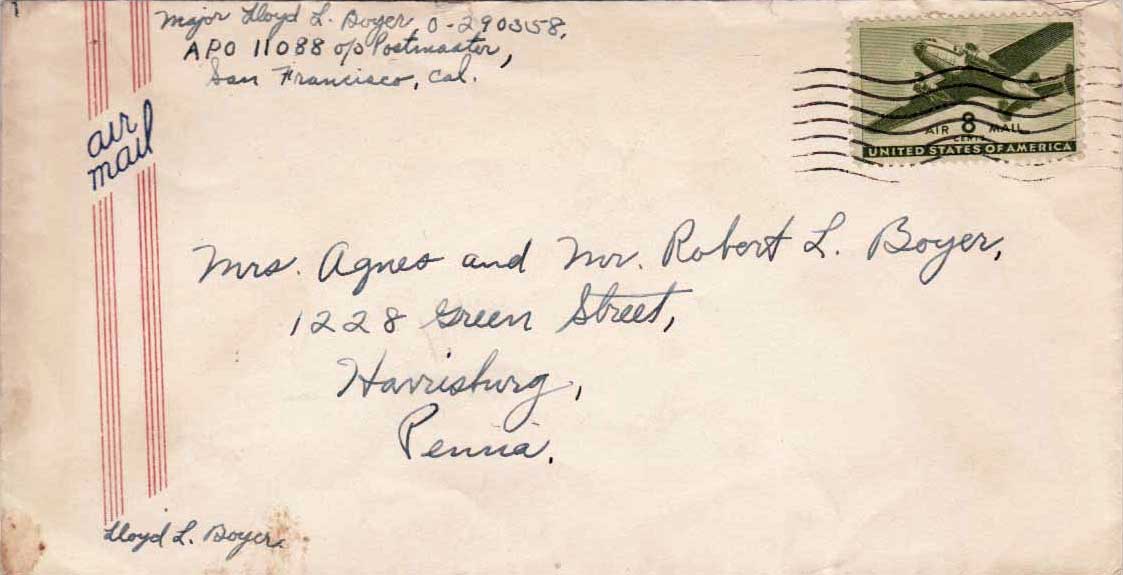 Major Lloyd L. Boyer O-290358,
APO 11088 c/o Postmaster,
San Francisco, Cal.
air
mail
AIR 8 MAIL
CENTS
UNITED STATES OF AMERICA
Mrs. Agnes and Mr. Robert L. Boyer,
1228 Green Street,
Harrisburg,
Penna.
Lloyd L. Boyer